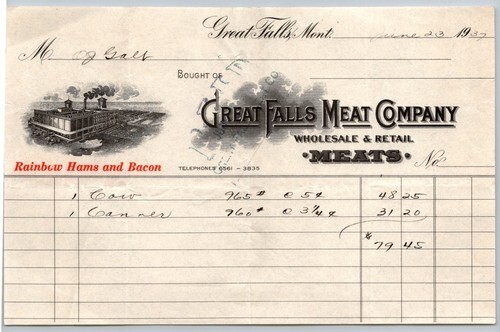 Great Falls, Mont. June 23 1937
M OJ Galt
BOUGHT OF
GREAT FALLS MEAT COMPANY
WHOLESALE & RETAIL
MEATS. No.
Rainbow Hams and Bacon
TELEPHONES 6361 - 3835
1 Cow 965# @ 5¢ 48 25
1 Canner 960# @ 3¼¢ 31 20
$
79 45